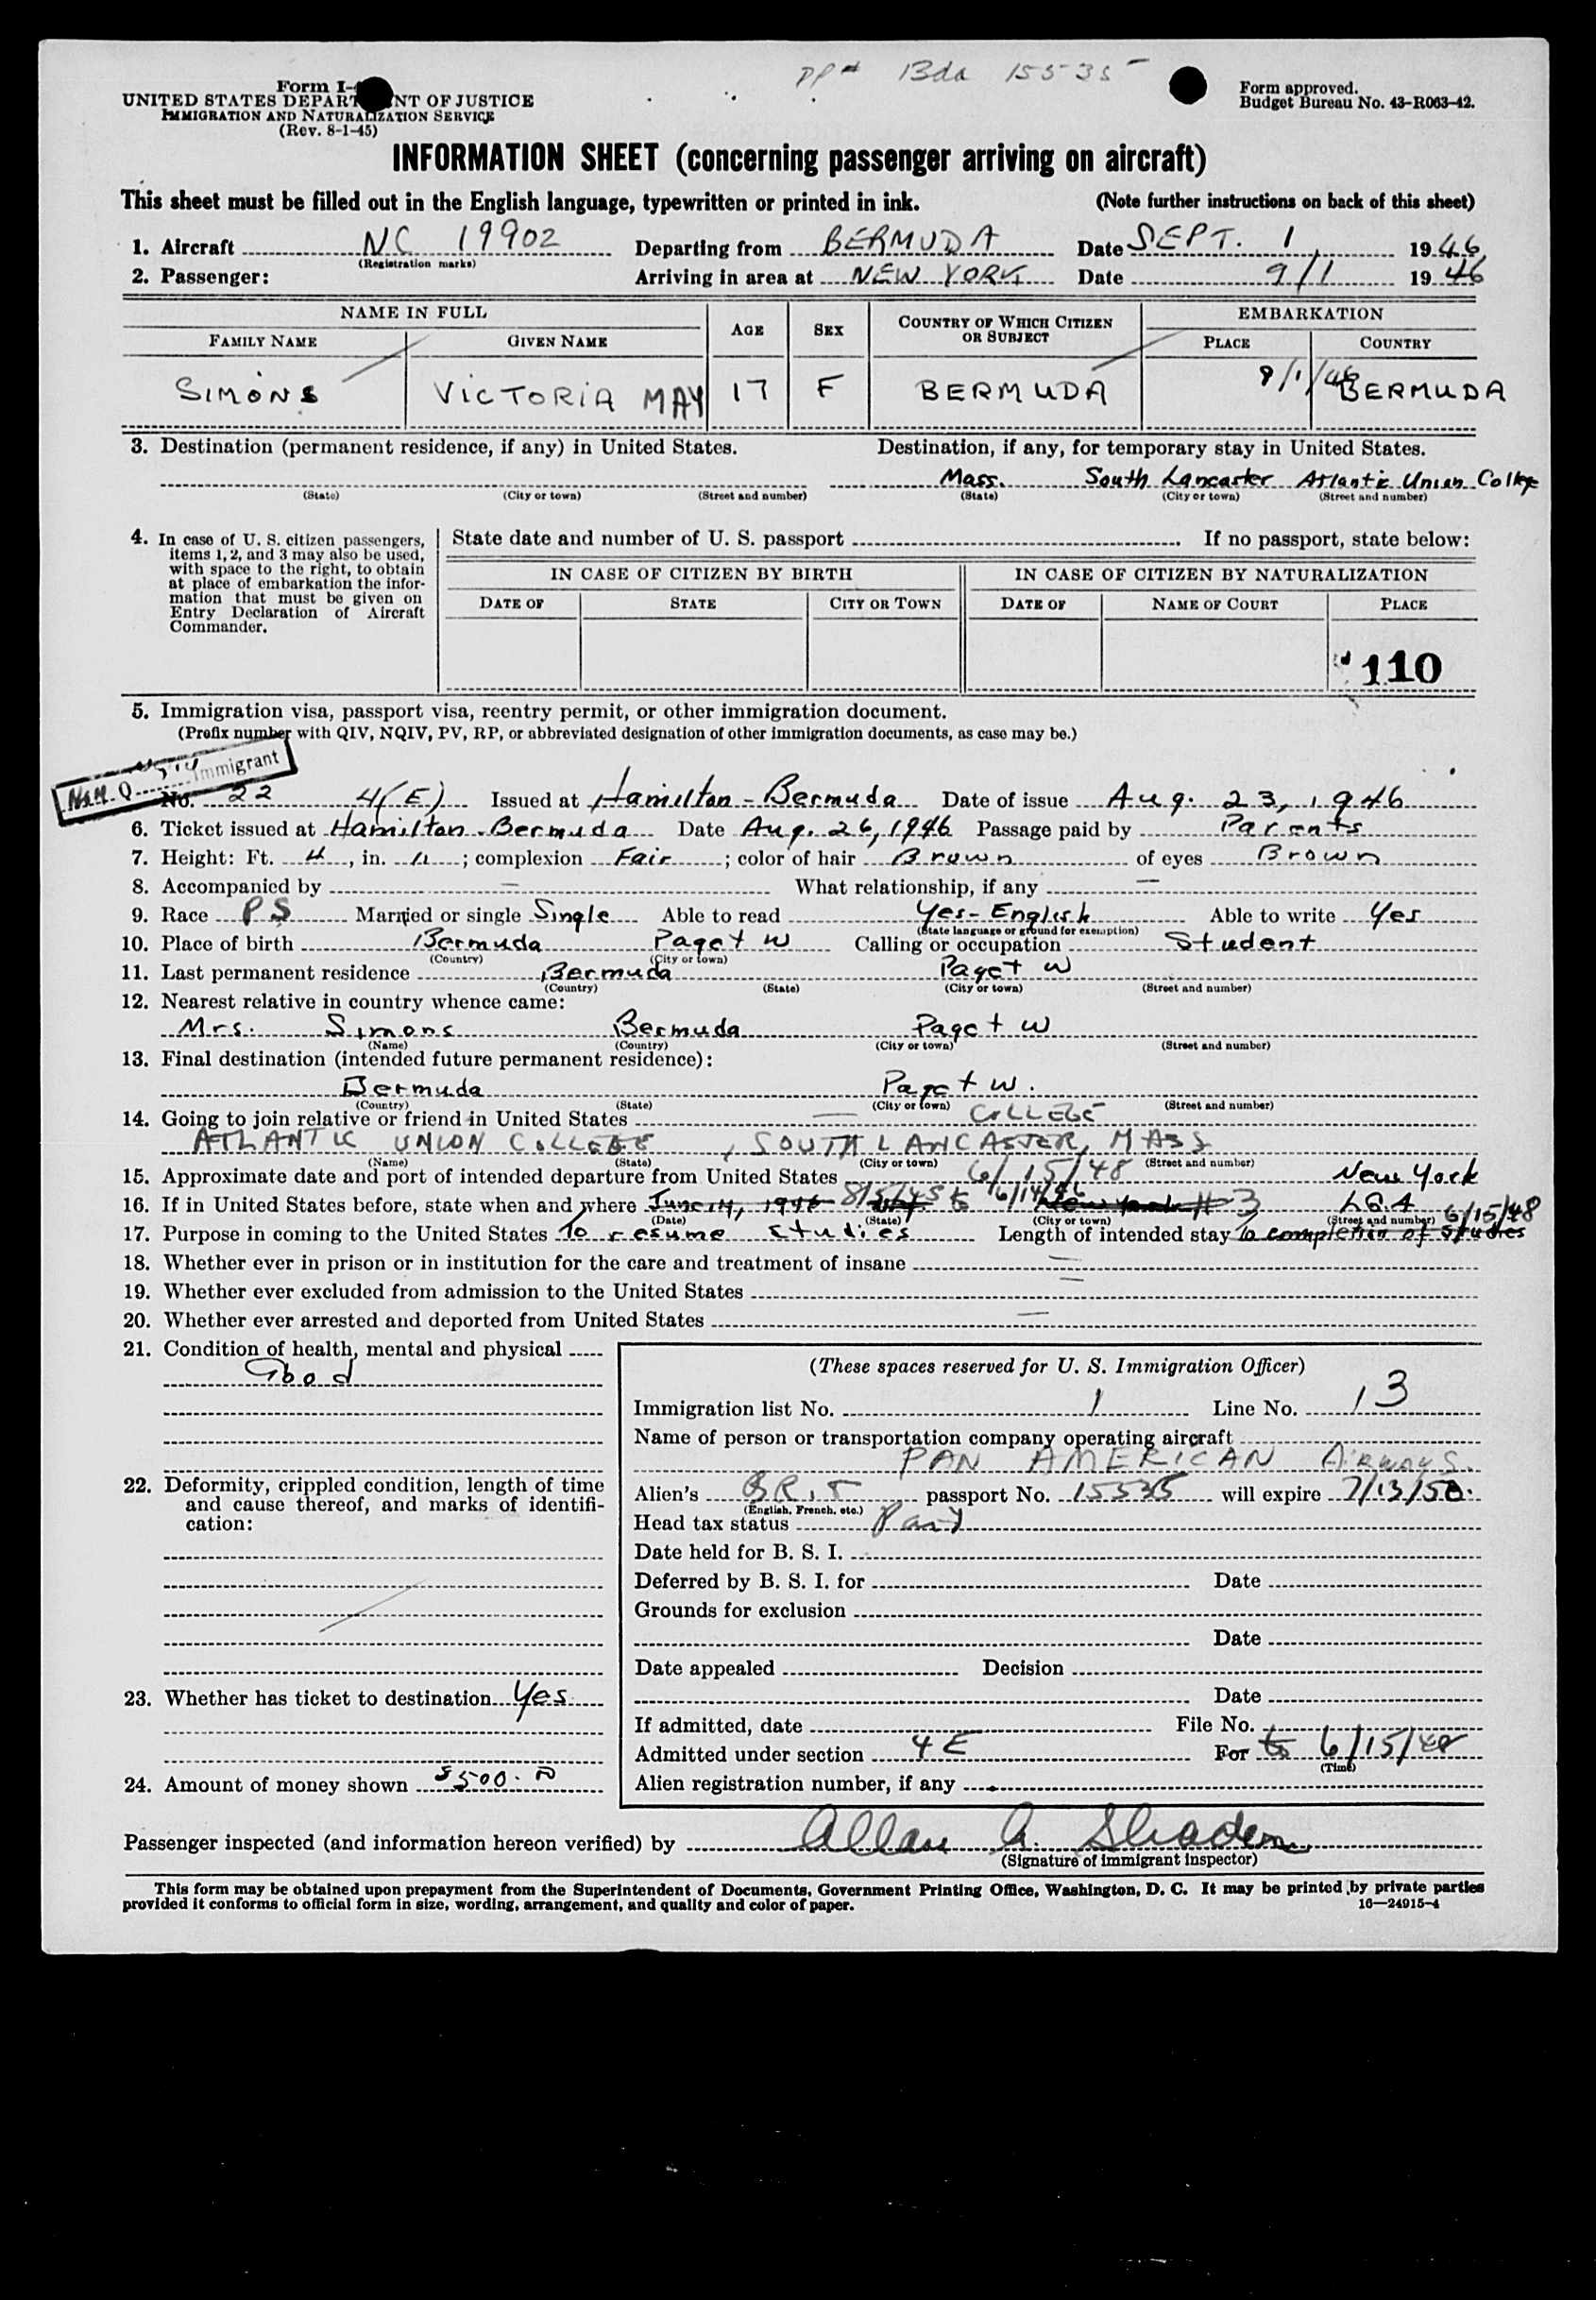 PP# Bda 15535
Form I-
UNITED STATES DEPART NT OF JUSTICE
IMMIGRATION AND NATURALIZATION SERVICE
(Rev. 8-1-45)
Form approved.
Budget Bureau No. 43-R063-42.
INFORMATION SHEET (concerning passenger arriving on aircraft)
This sheet must be filled out in the English language, typewritten or printed in ink. (Note further instructions on back of this sheet)
1. Aircraft NC 19902 Departing from BERMUDA Date SEPT. 1, 1946
(Registration marks)
2. Passenger: Arriving in area at NEW YORK Date 9/1 1946
NAME IN FULL AGE SEX COUNTRY OF WHICH CITIZEN OR SUBJECT EMBARKATION
FAMILY NAME GIVEN NAME PLACE COUNTRY
SIMONS VICTORIA MAY 17 F BERMUDA 9/1/46 BERMUDA
3. Destination (permanent residence, if any) in United States. Destination, if any, for temporary stay in United States.
Mass. South Lancaster Atlantic Union College
(State) (City or town) (Street and number) (State) (City or town) (Street and number)
4. In case of U. S. citizen passengers,
items 1, 2, and 3 may also be used,
with space to the right, to obtain
at place of embarkation the infor-
mation that must be given on
Entry Declaration of Aircraft
Commander.
State date and number of U. S. passport If no passport, state below:
IN CASE OF CITIZEN BY BIRTH IN CASE OF CITIZEN BY NATURALIZATION
DATE OF STATE CITY OR TOWN DATE OF NAME OF COURT PLACE
110
5. Immigration visa, passport visa, reentry permit, or other immigration document.
(Prefix number with QIV, NQIV, PV, RP, or abbreviated designation of other immigration documents, as case may be.)
Immigrant
No. 22 4(E) Issued at Hamilton - Bermuda Date of issue Aug. 23, 1946
6. Ticket issued at Hamilton - Bermuda Date Aug. 26, 1946 Passage paid by Parents
7. Height: Ft. 4, in. 11; complexion Fair; color of hair Brown of eyes Brown
8. Accompanied by — What relationship, if any —
9. Race PS Married or single Single Able to read Yes - English Able to write Yes
(State language or ground for exemption)
10. Place of birth Bermuda Paget W Calling or occupation Student
(Country) (City or town)
11. Last permanent residence Bermuda Paget W
(Country) (State) (City or town) (Street and number)
12. Nearest relative in country whence came:
Mrs. Simons Bermuda Paget W
(Name) (Country) (City or town) (Street and number)
13. Final destination (intended future permanent residence):
Bermuda Paget W.
(Country) (State) (City or town) (Street and number)
14. Going to join relative or friend in United States — COLLEGE
ATLANTIC UNION COLLEGE, SOUTH LANCASTER, MASS
(Name) (State) (City or town) (Street and number)
15. Approximate date and port of intended departure from United States 6/15/48 New York
16. If in United States before, state when and where June 14, 1946 8/5/45 to 6/14/46 New York #3 LGA
(Date) (State) (City or town) (Street and number) 6/15/48
17. Purpose in coming to the United States To resume studies Length of intended stay To completion of studies
18. Whether ever in prison or in institution for the care and treatment of insane —
19. Whether ever excluded from admission to the United States —
20. Whether ever arrested and deported from United States —
21. Condition of health, mental and physical
Good
22. Deformity, crippled condition, length of time
and cause thereof, and marks of identifi-
cation:
23. Whether has ticket to destination Yes
24. Amount of money shown $500.00
(These spaces reserved for U. S. Immigration Officer)
Immigration list No. 1 Line No. 13
Name of person or transportation company operating aircraft
PAN AMERICAN AIRWAYS.
Alien's BRIT passport No. 15535 will expire 7/13/50.
(English, French, etc.)
Head tax status Paid
Date held for B. S. I.
Deferred by B. S. I. for Date
Grounds for exclusion
Date
Date appealed Decision
Date
If admitted, date File No.
Admitted under section 4E For to 6/15/48
(Time)
Alien registration number, if any
Passenger inspected (and information hereon verified) by Allan A.
(Signature of immigrant inspector)
This form may be obtained upon prepayment from the Superintendent of Documents, Government Printing Office, Washington, D. C. It may be printed by private parties
provided it conforms to official form in size, wording, arrangement, and quality and color of paper. 16—24915-4